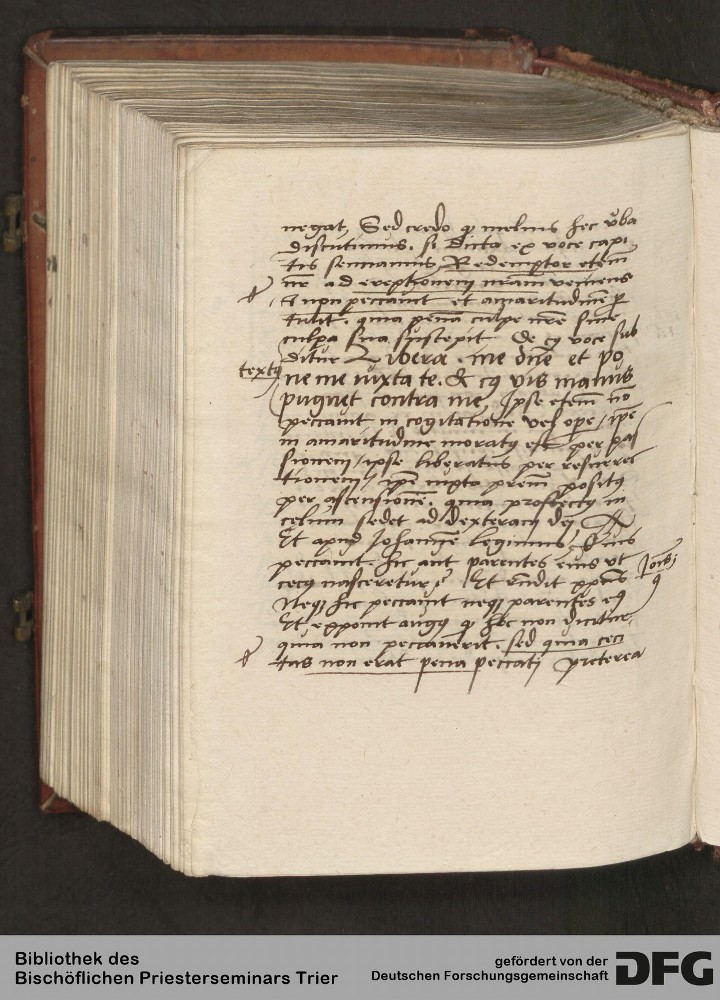 negat, Sed credo qͥ melius hec v̓ba
discutimus. si Dicta ex voce capi
tis sentiamus, Redemptor etem̄
nr̄ ad ereptionem nr̄am veniens
& non peccauit et amaritudinē ꝑ
tulit. quia penā culpe nr̄e sine
culpa sua suscepit De cꝰ voce sub
ditur Libera me dn̄e et po
textꝰ
ne me iuxta te. & cꝰ vis manus
pugnet contra me, Ipse etem̄ nō
peccauit in cogitatione vel ope / ip̄e
in amaritudine moratꝰ est per pas
sionem / ipse liberatus per resurrec
tionem / ip̄e iuxta prēm positꝰ
per ascensionē. quia profectꝰ in
celum sedet ad dexteram dei
Et apud Johannē legimus / Quis
peccauit. hic aut parentes eius vt
cecꝰ nasceretur? Et rn̄dit xp̄us
Joh̄is
9
Neqꝫ hic peccauit neqꝫ parentes eiꝰ
Et exponit augꝰ qͥ hoc non dicitur
quia non peccauerit. sed quia ceci
tas non erat pena peccati preterea
Bibliothek des
Bischöflichen Priesterseminars Trier
gefördert von der
Deutschen Forschungsgemeinschaft
DFG